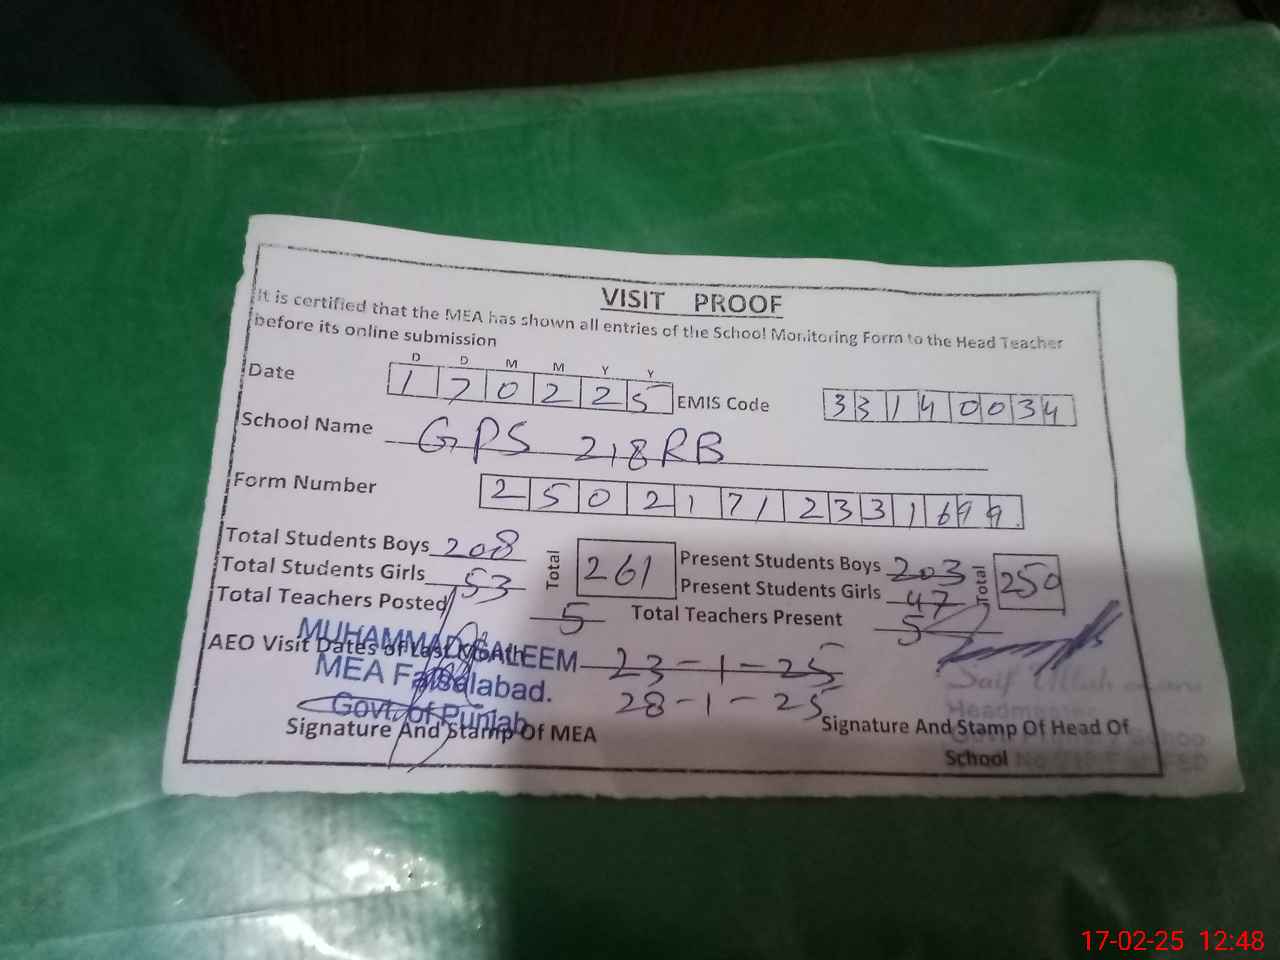 VISIT PROOF
It is certified that the MEA has shown all entries of the School Monitoring Form to the Head Teacher
before its online submission
D D M M Y Y
Date 1 7 0 2 2 5 EMIS Code 3 3 1 4 0 0 3 4
School Name GPS 218RB
Form Number 2 5 0 2 1 7 1 2 3 3 1 6 9 9
Total Students Boys 208 Total 261 Present Students Boys 203 Total 250
Total Students Girls 53 Present Students Girls 47
Total Teachers Posted 5 Total Teachers Present 5
AEO Visit Dates of Last Month 23-1-25
28-1-25
MUHAMMAD SALEEM
MEA Faisalabad.
Govt. of Punjab
Signature And Stamp Of MEA
Saif Ullah
Signature And Stamp Of Head Of
School
17-02-25 12:48